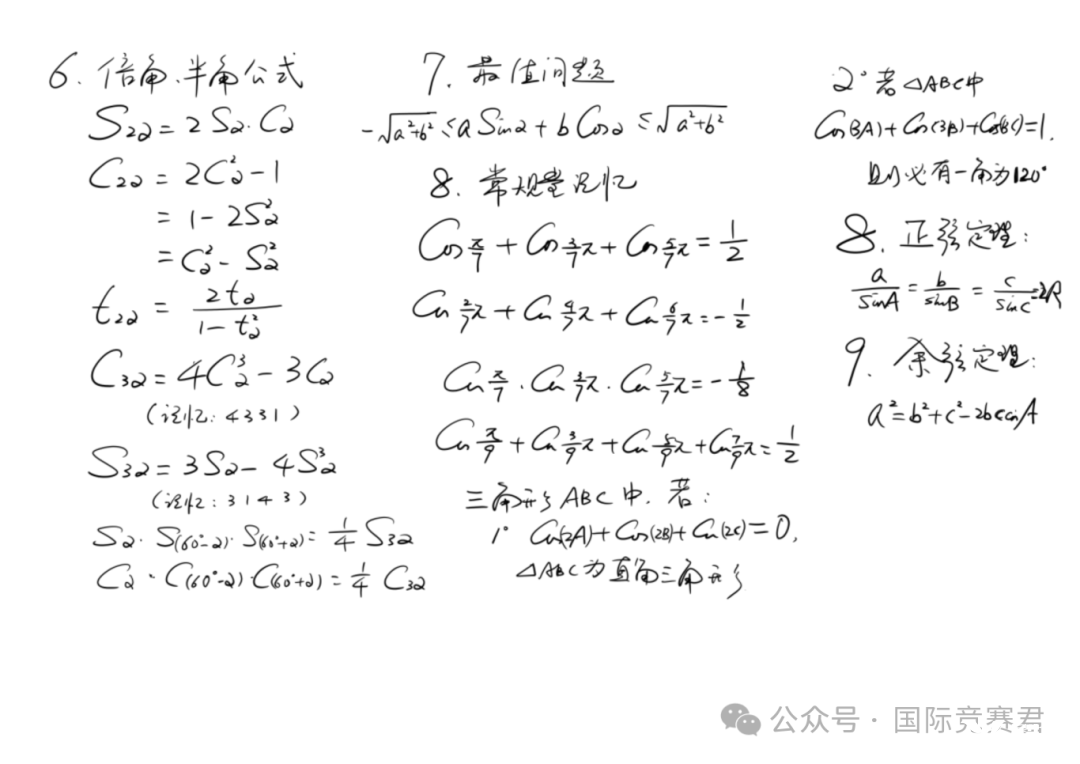 6. 倍角、半角公式
S₂α = 2Sα·Cα
C₂α = 2C²α - 1
= 1 - 2S²α
= C²α - S²α
t₂α = 2tα / (1 - t²α)
C₃α = 4C³α - 3Cα
(记忆: 4331)
S₃α = 3Sα - 4S³α
(记忆: 3143)
Sα·S(60°-α)·S(60°+α) = 1/4 S₃α
Cα·C(60°-α)·C(60°+α) = 1/4 C₃α
7. 最值问题
-√(a²+b²) ≤ a Sinα + b Cosα ≤ √(a²+b²)
8. 常规量记忆
Cos π/7 + Cos 3/7 π + Cos 5/7 π = 1/2
Cos 2/7 π + Cos 4/7 π + Cos 6/7 π = -1/2
Cos π/7 · Cos 3/7 π · Cos 5/7 π = -1/8
Cos π/9 + Cos 3/9 π + Cos 5/9 π + Cos 7/9 π = 1/2
三角形ABC中, 若:
1° Cos(2A) + Cos(2B) + Cos(2C) = 0,
△ABC为直角三角形
2° 若△ABC中
Cos(3A) + Cos(3B) + Cos(3C) = 1,
则必有一角为120°
8. 正弦定理:
a/sinA = b/sinB = c/sinC = 2R
9. 余弦定理:
a² = b² + c² - 2bccosA
公众号 · 国际竞赛君